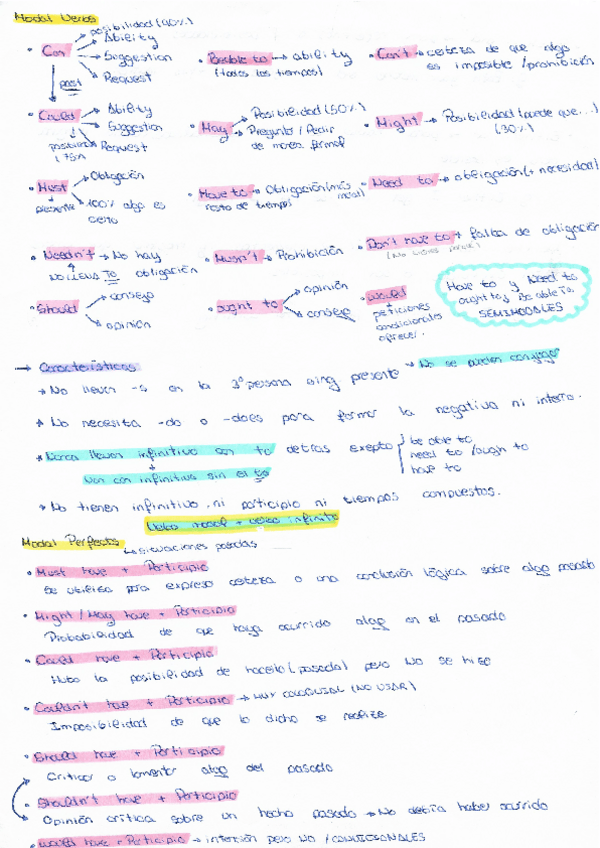 Modal Verbs
posibilidad (90%)
• Can → Ability
→ Suggestion
→ Request
past
• Be able to → ability
(todos los tiempos)
• Can't → certeza de que algo
es imposible / prohibición
• Could → Ability
→ Suggestion
→ Request
• May → Posibilidad (50%)
→ Pregunta / Pedir
de manera formal
• Might → Posibilidad (puede que...)
(30%)
• Must → Obligación
presente
→ 100% algo es
cierto
• Have to → Obligación (más
resto de tiempos
• Need to → obligación (+ necesidad)
• Needn't → No hay
NO LLEVA TO obligación
• Musn't → Prohibición
• Don't have to → falta de obligación
• Should → consejo
→ opinión
• ought to → opinión
→ consejo
• Would
peticiones
condicionales
ofrecer.
Have to y Need to
ought to y Be able to.
SEMIMODALES
→ Características
→ No llevan -s en la 3ª persona sing presente → No se pueden conjugar
* No necesita -do o -does para formar la negativa ni interro.
* Nunca llevan infinitivo con to detrás exepto { be able to
need to / ough to
have to
Van con infinitivo sin el to
* No tienen infinitivo, ni participio ni tiempos compuestos.
Verbo modal + verbo infinito
Modal Perfects → situaciones pasadas
• Must have + Participio
Se utiliza para expresar certeza o una conclusión lógica sobre algo pasado
• Might / May have + Participio
Probabilidad de que haya ocurrido algo en el pasado
• Could have + Participio
Hubo la posibilidad de hacerlo (pasada) pero NO se hizo
• Couldn't have + Participio → MUY COLOQUIAL (NO USAR)
Imposibilidad de que lo dicho se realize
• Should have + Participio
Criticar o lamentar algo del pasado
• Shouldn't have + Participio
Opinión crítica sobre un hecho pasado → No debría haber ocurrido
• Would have + Participio → intención pero NO / CONDICIONALES